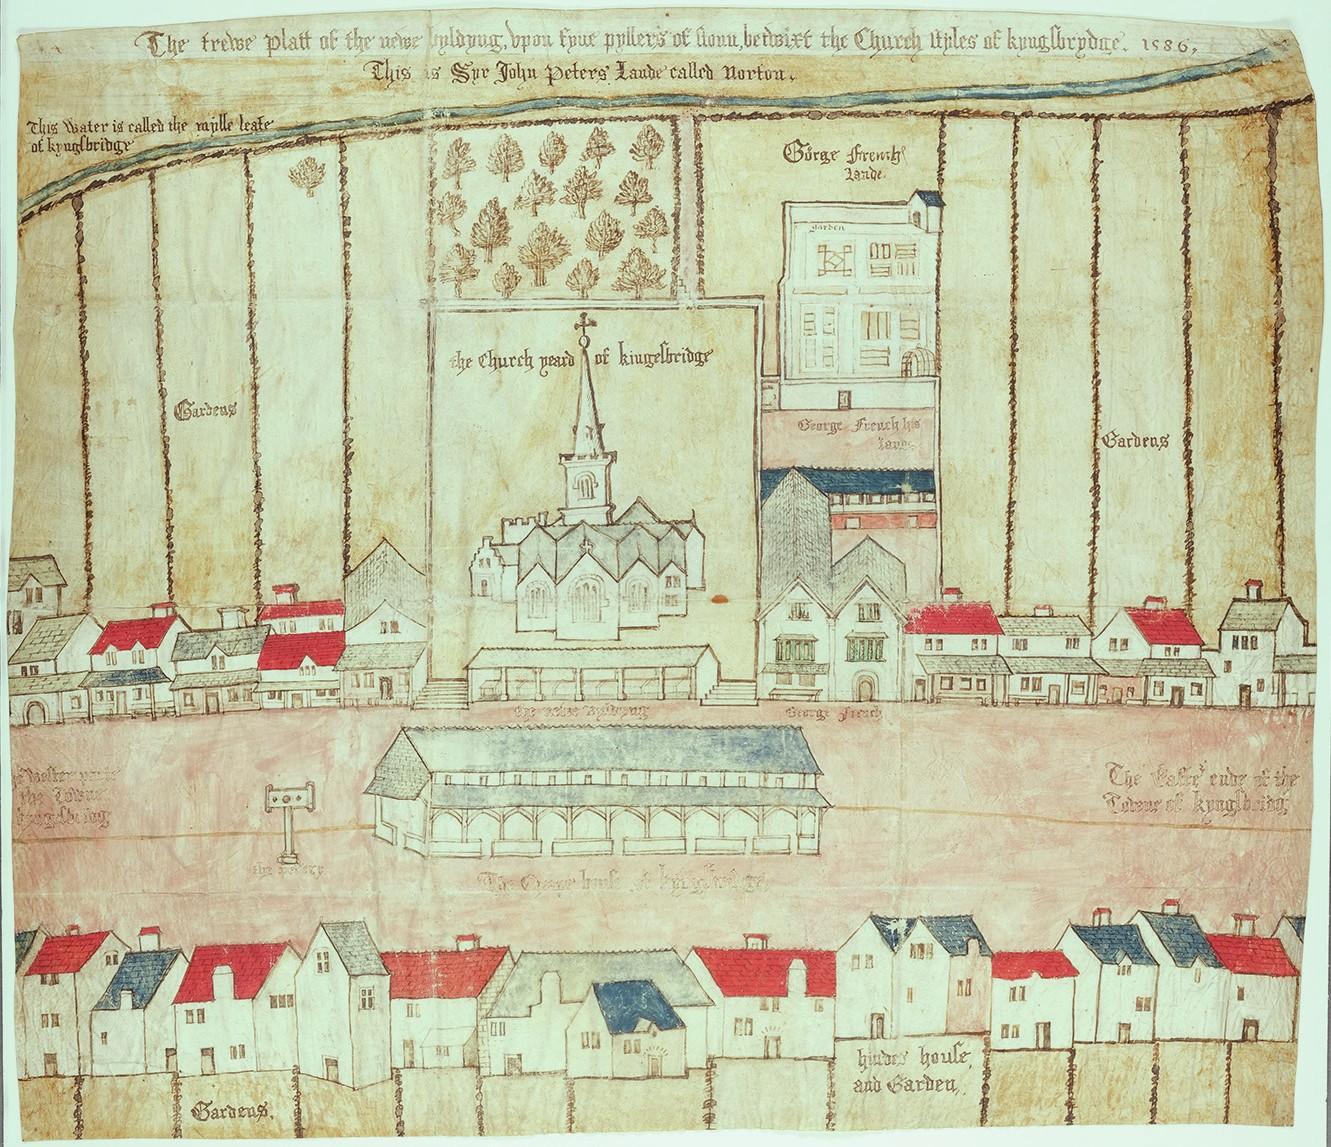 The trewe platt of the newe byldyng, vpon fyue pyllers of stonn, betwixt the Church styles of kyngsbrydge. 1586,
This is Syr John Peters Lande called Norton.
This water is called the mylle leate
of kyngsbridge
Gorge French
Lande.
garden
the Church yeard of kingesbridge
Gardens
George French his
lande
Gardens
the newe byldyng
George French
the Towne
kyngsbridg
The Easte ende of the
Towne of kyngsbridg
The house of kyngsbridge,
house,
and Garden,
Gardens.